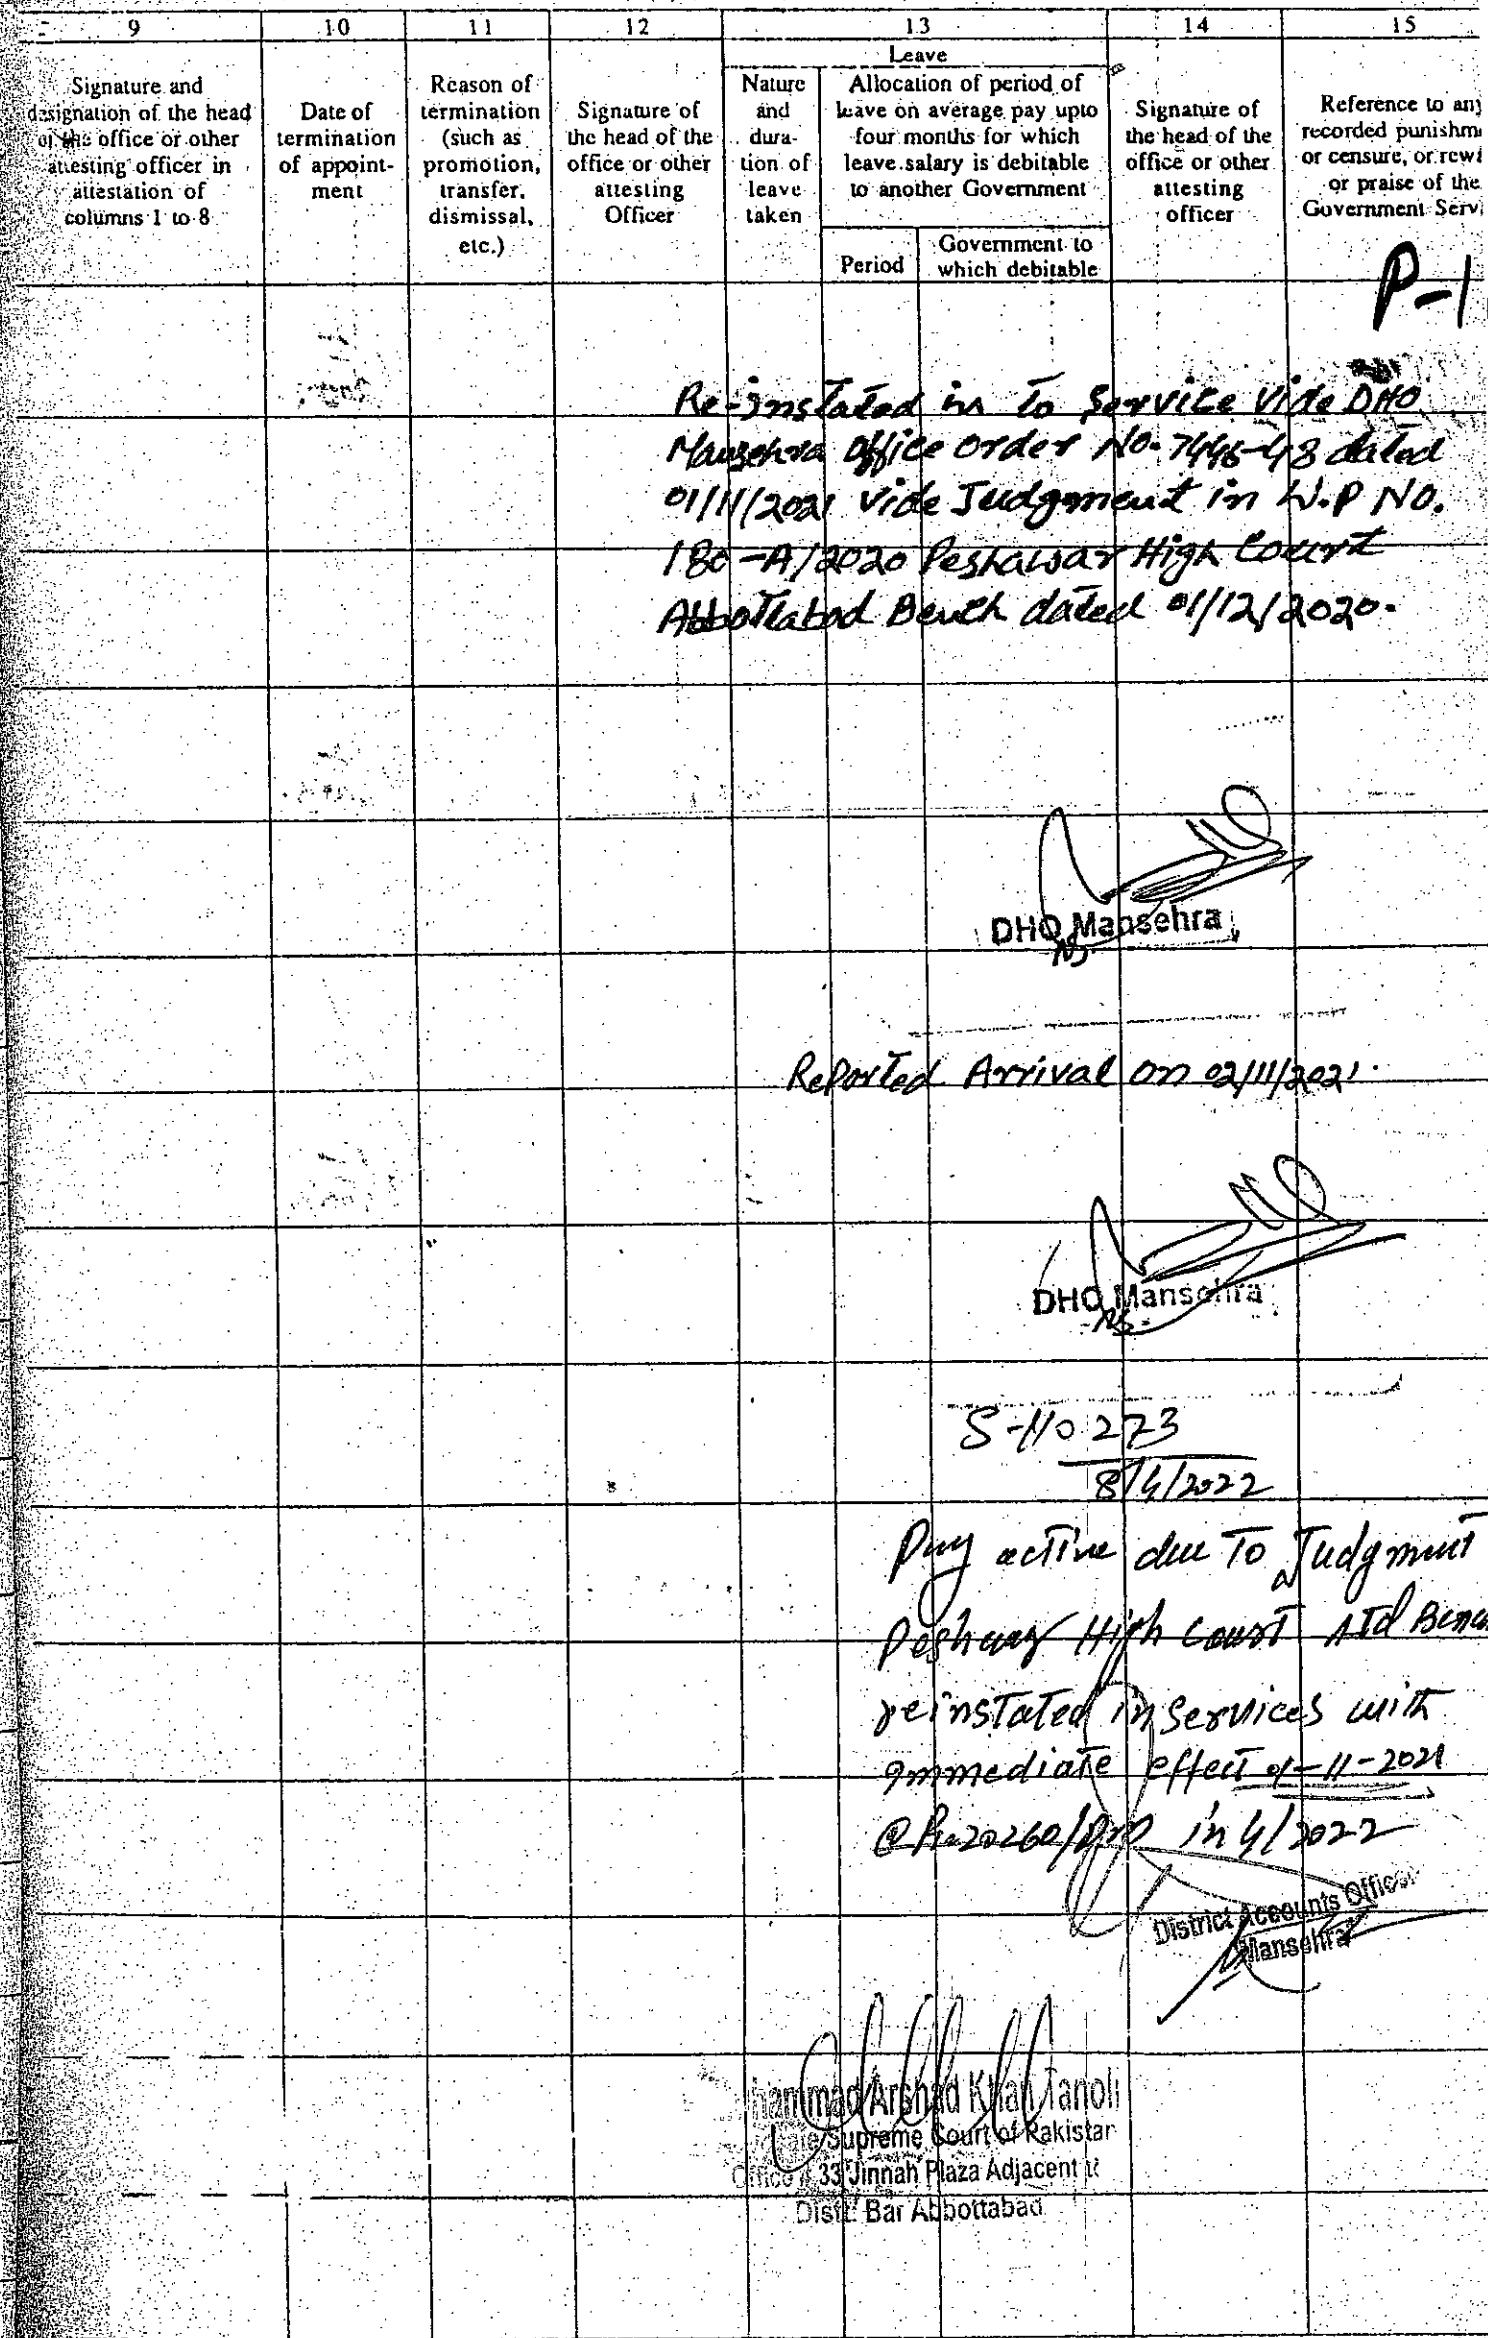 9 10 11 12 13 14 15
Leave
Signature and
designation of the head
of the office or other
attesting officer in
attestation of
columns 1 to 8
Date of
termination
of appoint-
ment
Reason of
termination
(such as
promotion,
transfer,
dismissal,
etc.)
Signature of
the head of the
office or other
attesting
Officer
Nature
and
dura-
tion of
leave
taken
Allocation of period of
leave on average pay upto
four months for which
leave salary is debitable
to another Government
Period
Government to
which debitable
Signature of
the head of the
office or other
attesting
officer
Reference to any
recorded punishm
or censure, or rewa
or praise of the
Government Serv
P-1
Re-Instated in to Service Vide DHO
Mansehra Office order No. 7446-48 dated
01/11/2021 vide Judgment in W.P NO.
180-A/2020 Peshawar High Court
Abbottabad Bench dated 01/12/2020.
DHO Mansehra
Reported Arrival on 02/11/2021.
DHO Mansehra
S-No 273
8/4/2022
Pay active due To Judgment
Peshawar High Court Atd Bench
reinstated in services with
immediate effect 01-11-2021
@ Rs 20260/ in 4/2022
District Accounts Officer
Mansehra
hammad Arshad Khan Tanoli
Supreme Court of Pakistan
Office # 33 Jinnah Plaza Adjacent to
Distt: Bar Abbottabad